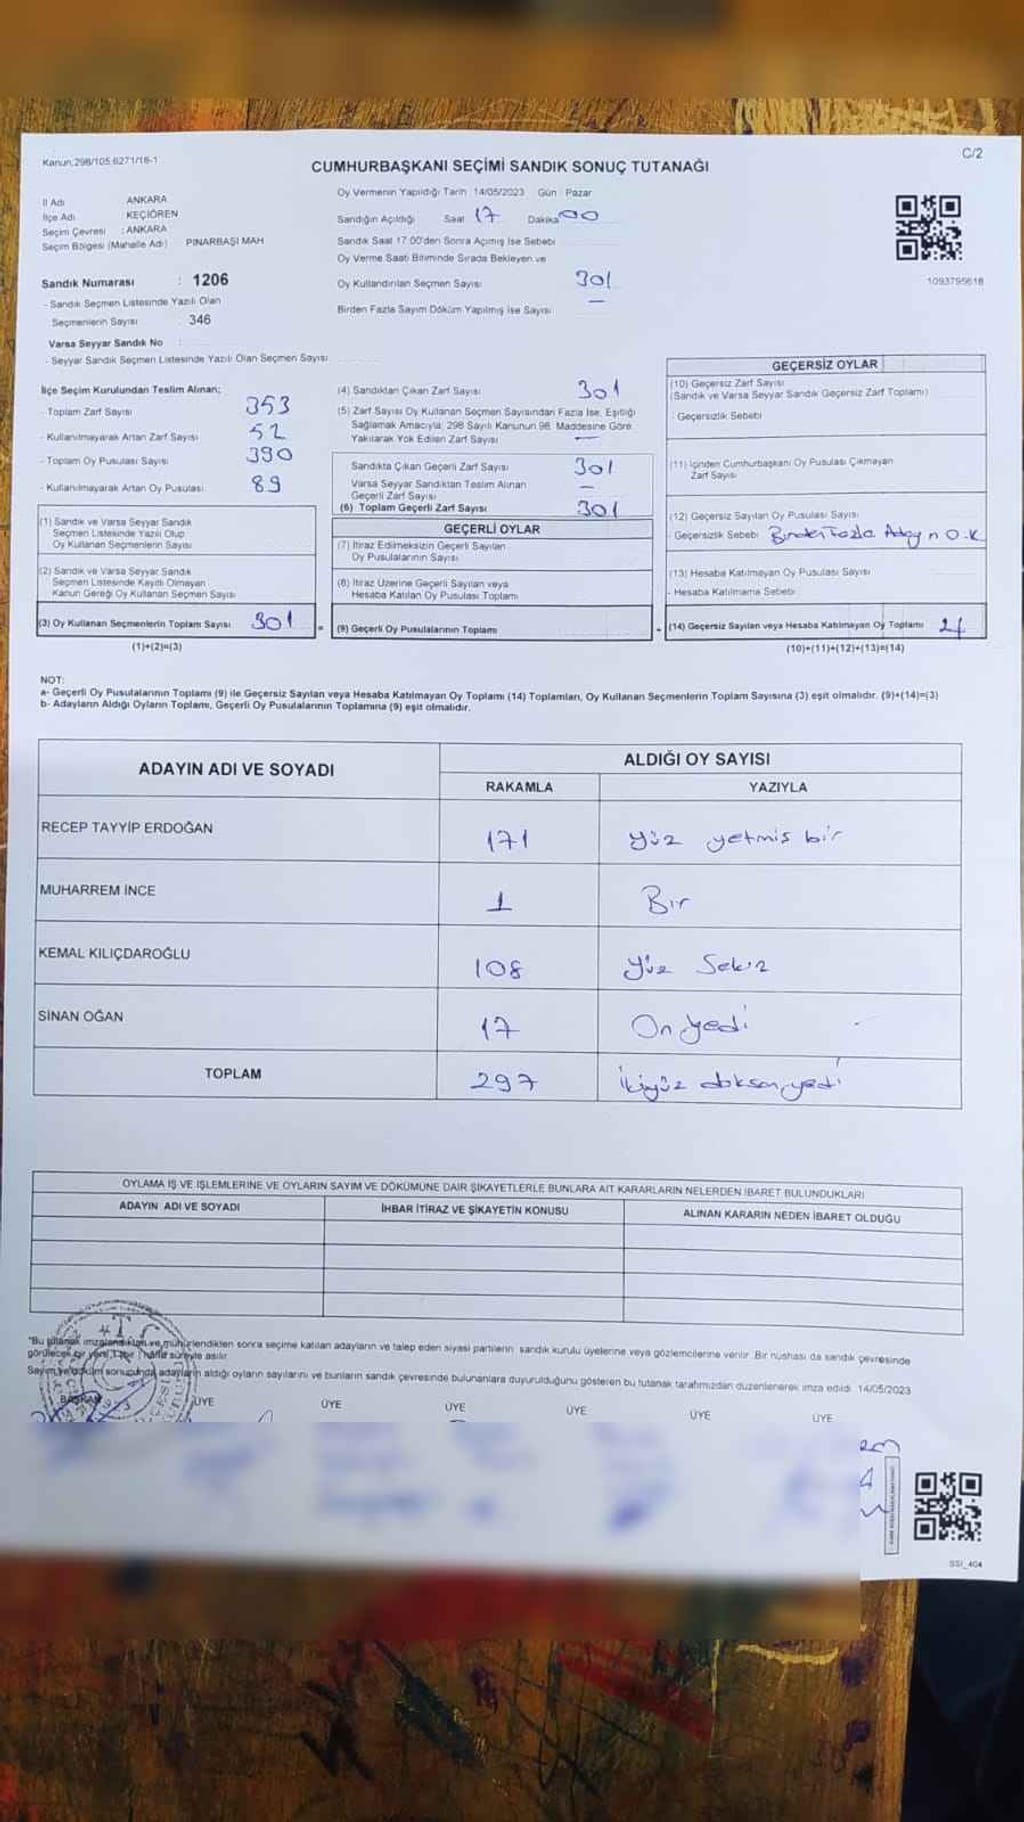 Kanun;298/105.6271/16-1
C/2
CUMHURBAŞKANI SEÇİMİ SANDIK SONUÇ TUTANAĞI
İl Adı ANKARA
İlçe Adı KEÇİÖREN
Seçim Çevresi : ANKARA
Seçim Bölgesi (Mahalle Adı) PINARBAŞI MAH
Oy Vermenin Yapıldığı Tarih 14/05/2023 Gün Pazar
Sandığın Açıldığı Saat 17 Dakika 00
Sandık Saat 17.00'den Sonra Açılmış İse Sebebi
Oy Verme Saati Bitiminde Sırada Bekleyen ve
Oy Kullandırılan Seçmen Sayısı 301
Birden Fazla Sayım Döküm Yapılmış İse Sayısı —
1093795618
Sandık Numarası : 1206
- Sandık Seçmen Listesinde Yazılı Olan
Seçmenlerin Sayısı 346
Varsa Seyyar Sandık No :
- Seyyar Sandık Seçmen Listesinde Yazılı Olan Seçmen Sayısı
İlçe Seçim Kurulundan Teslim Alınan;
- Toplam Zarf Sayısı 353
- Kullanılmayarak Artan Zarf Sayısı 52
- Toplam Oy Pusulası Sayısı 390
- Kullanılmayarak Artan Oy Pusulası 89
(1) Sandık ve Varsa Seyyar Sandık
Seçmen Listesinde Yazılı Olup
Oy Kullanan Seçmenlerin Sayısı
(2) Sandık ve Varsa Seyyar Sandık
Seçmen Listesinde Kayıtlı Olmayan
Kanun Gereği Oy Kullanan Seçmen Sayısı
(3) Oy Kullanan Seçmenlerin Toplam Sayısı 301
(1)+(2)=(3)
(4) Sandıktan Çıkan Zarf Sayısı 301
(5) Zarf Sayısı Oy Kullanan Seçmen Sayısından Fazla İse, Eşitliği
Sağlamak Amacıyla; 298 Sayılı Kanunun 98. Maddesine Göre
Yakılarak Yok Edilen Zarf Sayısı —
Sandıkta Çıkan Geçerli Zarf Sayısı 301
Varsa Seyyar Sandıktan Teslim Alınan
Geçerli Zarf Sayısı —
(6) Toplam Geçerli Zarf Sayısı 301
GEÇERLİ OYLAR
(7) İtiraz Edilmeksizin Geçerli Sayılan
Oy Pusulalarının Sayısı
(8) İtiraz Üzerine Geçerli Sayılan veya
Hesaba Katılan Oy Pusulası Toplamı
= (9) Geçerli Oy Pusulalarının Toplamı
GEÇERSİZ OYLAR
(10) Geçersiz Zarf Sayısı
(Sandık ve Varsa Seyyar Sandık Geçersiz Zarf Toplamı)
- Geçersizlik Sebebi
(11) İçinden Cumhurbaşkanı Oy Pusulası Çıkmayan
Zarf Sayısı
(12) Geçersiz Sayılan Oy Pusulası Sayısı
- Geçersizlik Sebebi Birden Fazla Adayın O.K
(13) Hesaba Katılmayan Oy Pusulası Sayısı
- Hesaba Katılmama Sebebi
(14) Geçersiz Sayılan veya Hesaba Katılmayan Oy Toplamı 4
(10)+(11)+(12)+(13)=(14)
NOT:
a- Geçerli Oy Pusulalarının Toplamı (9) ile Geçersiz Sayılan veya Hesaba Katılmayan Oy Toplamı (14) Toplamları, Oy Kullanan Seçmenlerin Toplam Sayısına (3) eşit olmalıdır. (9)+(14)=(3)
b- Adayların Aldığı Oyların Toplamı, Geçerli Oy Pusulalarının Toplamına (9) eşit olmalıdır.
ADAYIN ADI VE SOYADI
ALDIĞI OY SAYISI
RAKAMLA YAZIYLA
RECEP TAYYİP ERDOĞAN 171 Yüz yetmiş bir
MUHARREM İNCE 1 Bir
KEMAL KILIÇDAROĞLU 108 Yüz Sekiz
SİNAN OĞAN 17 On yedi
TOPLAM 297 ikiyüz doksanyedi
OYLAMA İŞ VE İŞLEMLERİNE VE OYLARIN SAYIM VE DÖKÜMÜNE DAİR ŞİKAYETLERLE BUNLARA AİT KARARLARIN NELERDEN İBARET BULUNDUKLARI
ADAYIN ADI VE SOYADI İHBAR İTİRAZ VE ŞİKAYETİN KONUSU ALINAN KARARIN NEDEN İBARET OLDUĞU
"Bu tutanak imzalandıktan ve mühürlendikten sonra seçime katılan adayların ve talep eden siyasi partilerin sandık kurulu üyelerine veya gözlemcilerine verilir. Bir nüshası da sandık çevresinde
görülecek bir yere 1 (bir) hafta süreyle asılır.
Sayım ve döküm sonucunda adayların aldığı oyların sayılarını ve bunların sandık çevresinde bulunanlara duyurulduğunu gösteren bu tutanak tarafımızdan düzenlenerek imza edildi. 14/05/2023
BAŞKAN ÜYE ÜYE ÜYE ÜYE ÜYE ÜYE
SSI_404